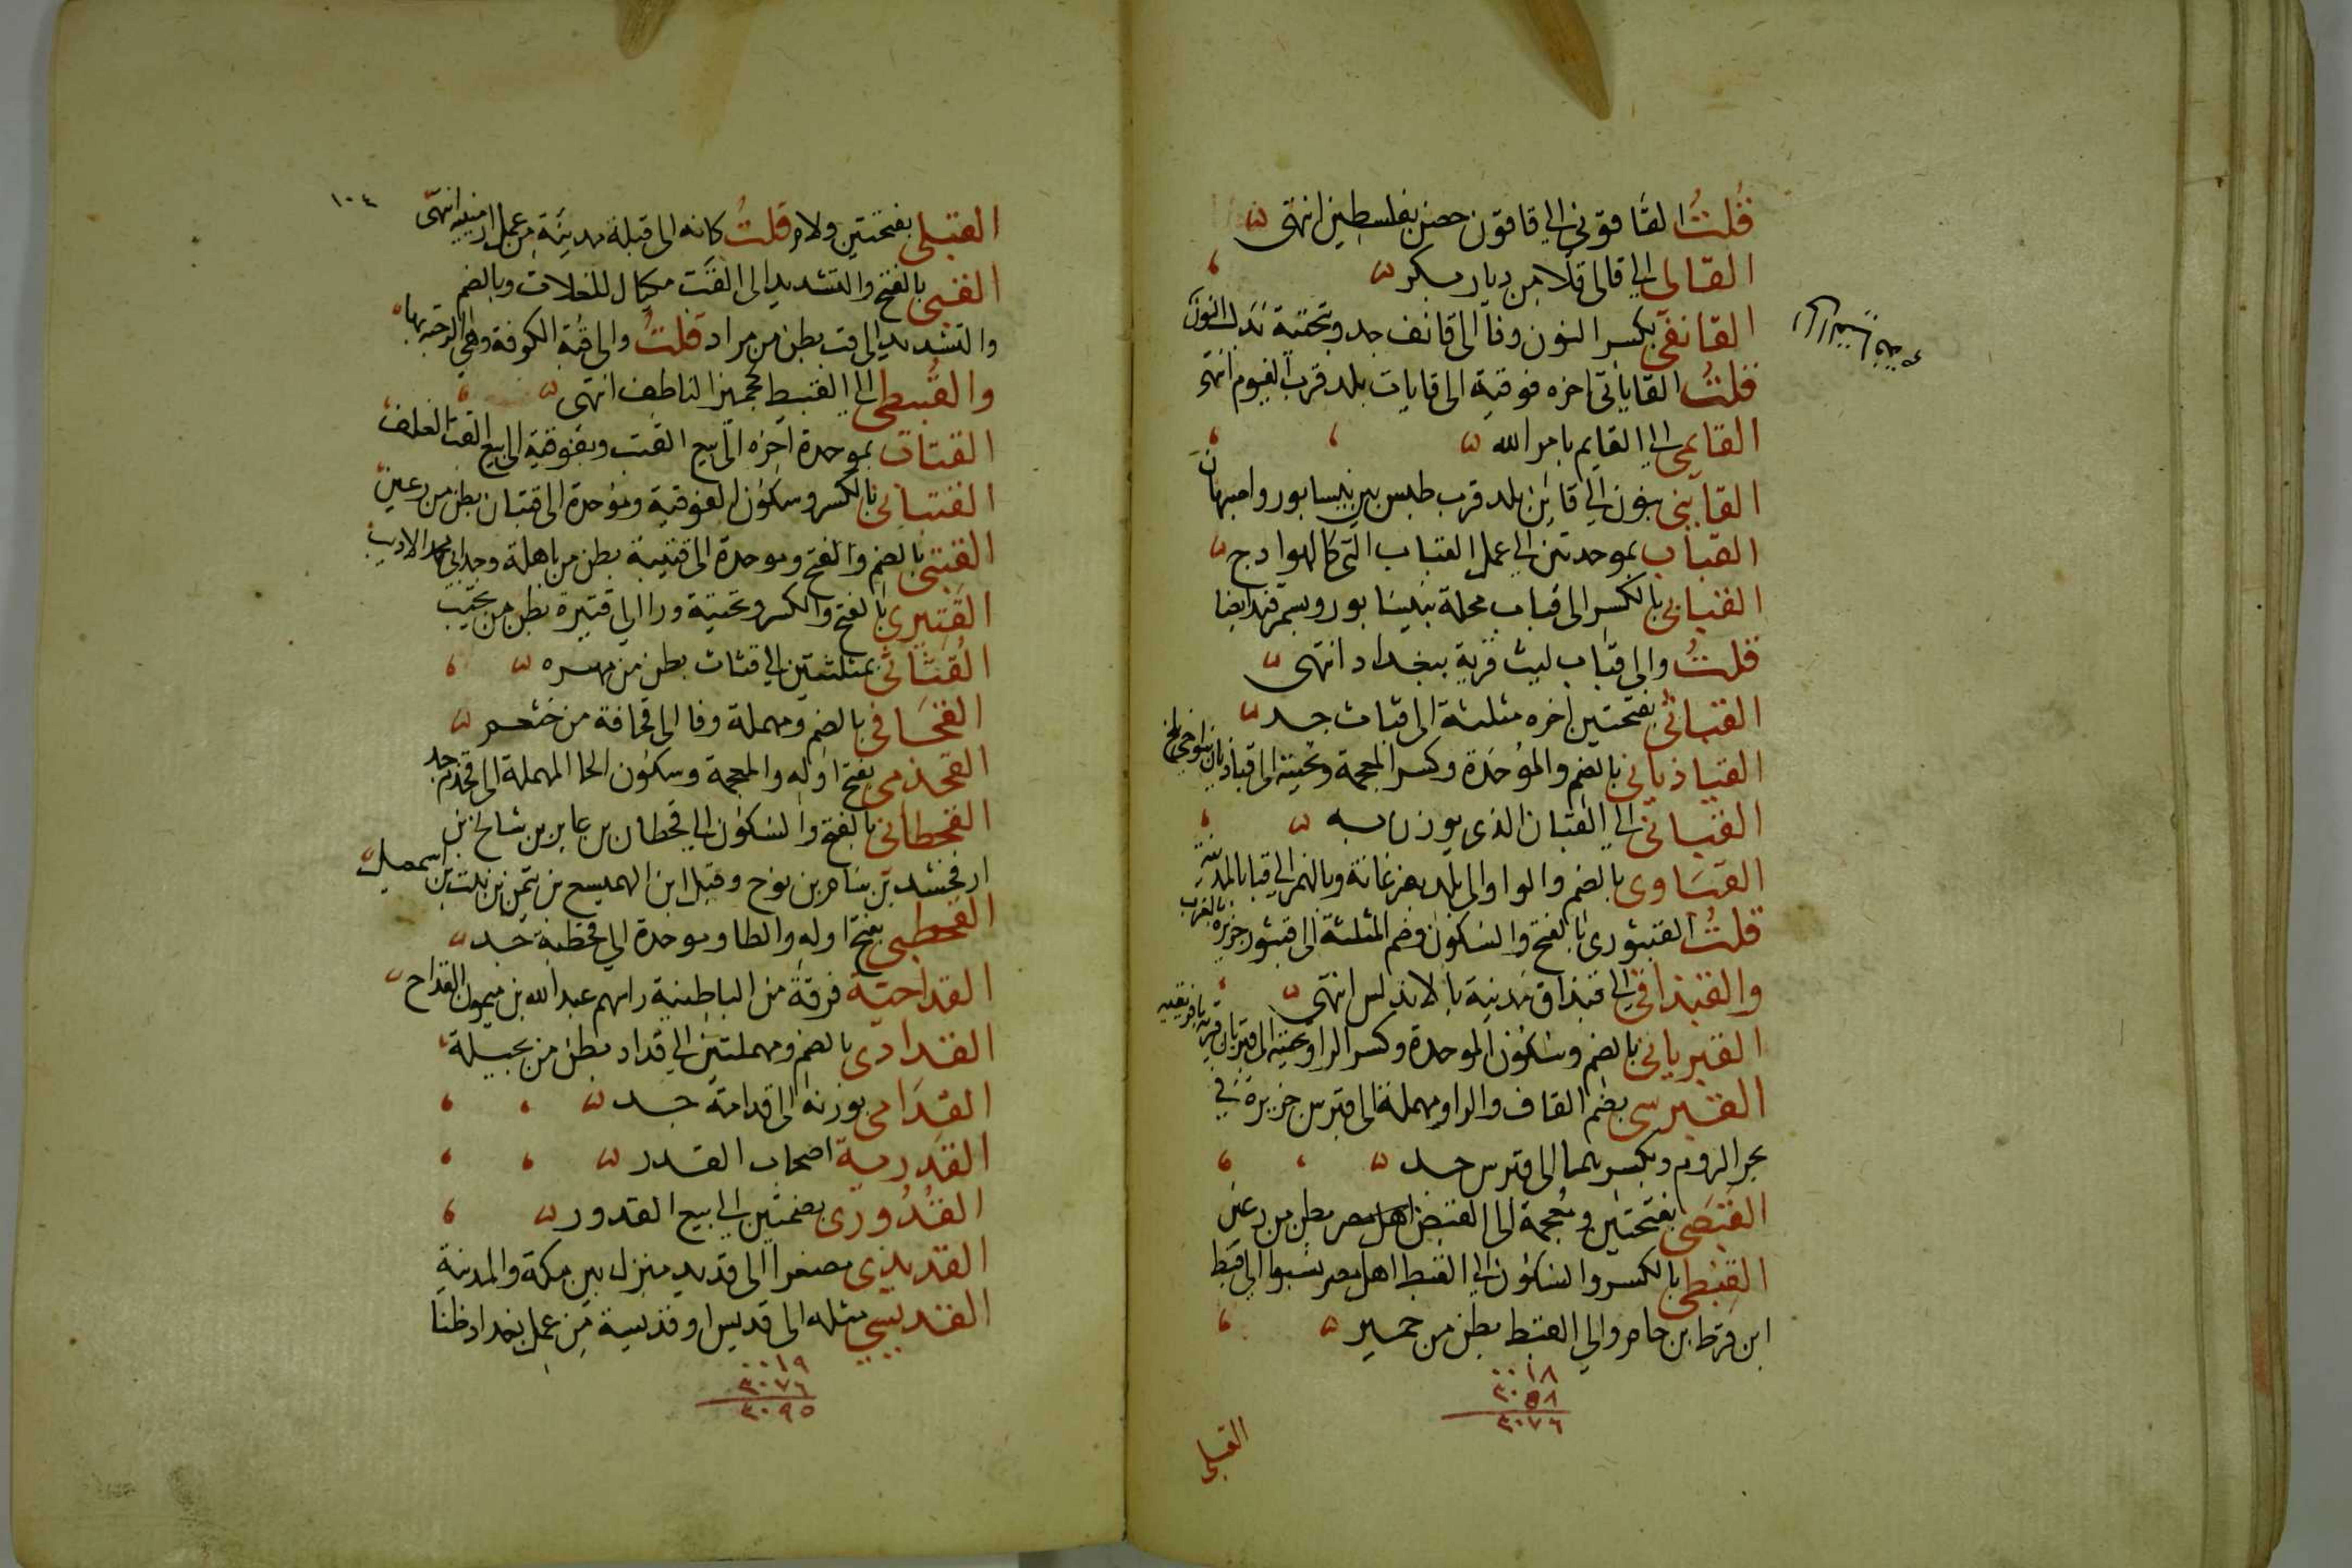 قلت القاقوني الى قاقون حصن بفلسطين انتهى
القالي الى قالي قلا من ديار بكر
القانفي بكسر النون وفا الى قانف جد وبتحتية بدل النون
قلت القاياتي اخره فوقية الى قايات بلد قرب الفيوم انتهى
القايمي الى القايم بامر الله
القايني بنون الى قاين بلد قرب طبس بين نيسابور واصبهان
القباب بموحدتين الى عمل القباب التي كالهوادج
القبابي بالكسر الى قباب محلة بنيسابور وبسمرقند ايضا
قلت والى قباب ليث قرية ببغداد انتهى
القباثي بفتحتين اخره مثلثة الى قباث جد
القباذياني بالضم والموحدة وكسر المعجمة وتحتية الى قباذيان بنواحي بلخ
القباني الى القبان الذي يوزن به
القباوي بالضم والواو الى بلد بفرغانة وبالهمز الى قبا بالمدينة
قلت القبثوري بالفتح والسكون وضم المثلثة الى قبثور جزيرة بالغرب
والقبذاقي الى قبذاق مدينة بالاندلس انتهى
القبرياني بالضم وسكون الموحدة وكسر الرا وتحتية الى قبريان قرية بافريقية
القبرسي بضم القاف والرا ومهملة الى قبرس جزيرة في
بحر الروم وبكسرهما الى قبرس جد
القبضي بفتحتين ومعجمة الى القبض اهل مصر بطن من رعين
القبطي بالكسر والسكون الى القبط اهل مصر نسبوا الى قبط
ابن قرط بن حام والى القبط بطن من حمير
٠٠١٨
٣٠٥٨
٣٠٧٦
القبلي
١٠٤
القبلي بفتحتين ولام قلت كانه الى قبلة مدينة من عمل ارمنية انتهى
القبي بالفتح والتشديد الى القب مكيال للغلات وبالضم
والتشديد الى قب بطن من مراد قلت والى قبة الكوفة وهي الرحبة بها
والقبيطي الى القبيط كجميز الناطف انتهى
القتاب بموحدة اخره الى بيع القتب وبفوقية الى بيع القت العلف
القتباني بالكسر وسكون الفوقية وموحدة الى قتبان بطن من رعين
القتبي بالضم والفتح وموحدة الى قتيبة بطن من باهلة وجد ابي محمد الاديب
القتيري بالفتح والكسر وتحتية ورا الى قتيرة بطن من تجيب
القثاثي بمثلثتين الى قثاث بطن من مهره
القحافي بالضم ومهملة وفا الى قحافة من خثعم
القحذمي بفتح اوله والمعجمة وسكون الحا المهملة الى قحذم جد
القحطاني بالفتح والسكون الى قحطان بن عابر بن شالخ بن
ارفخشد بن سام بن نوح وقيل ابن الهميسع بن تيمن بن نبت بن اسمعيل
القحطبي بفتح اوله والطا وموحدة الى قحطبة جد
القداحية فرقة من الباطنية راسهم عبد الله بن ميمون القداح
القدادي بالضم ومهملتين الى قداد بطن من بجيلة
القدامي بوزنه الى قدامة جد
القدرية اصحاب القدر
القدوري بضمتين الى بيع القدور
القديدي مصغرا الى قديد منزل بين مكة والمدينة
القديسي مثله الى قديس او قديسة من عمل بغداد ظنا
٠٠١٩
٣٠٧٦
٣٠٩٥